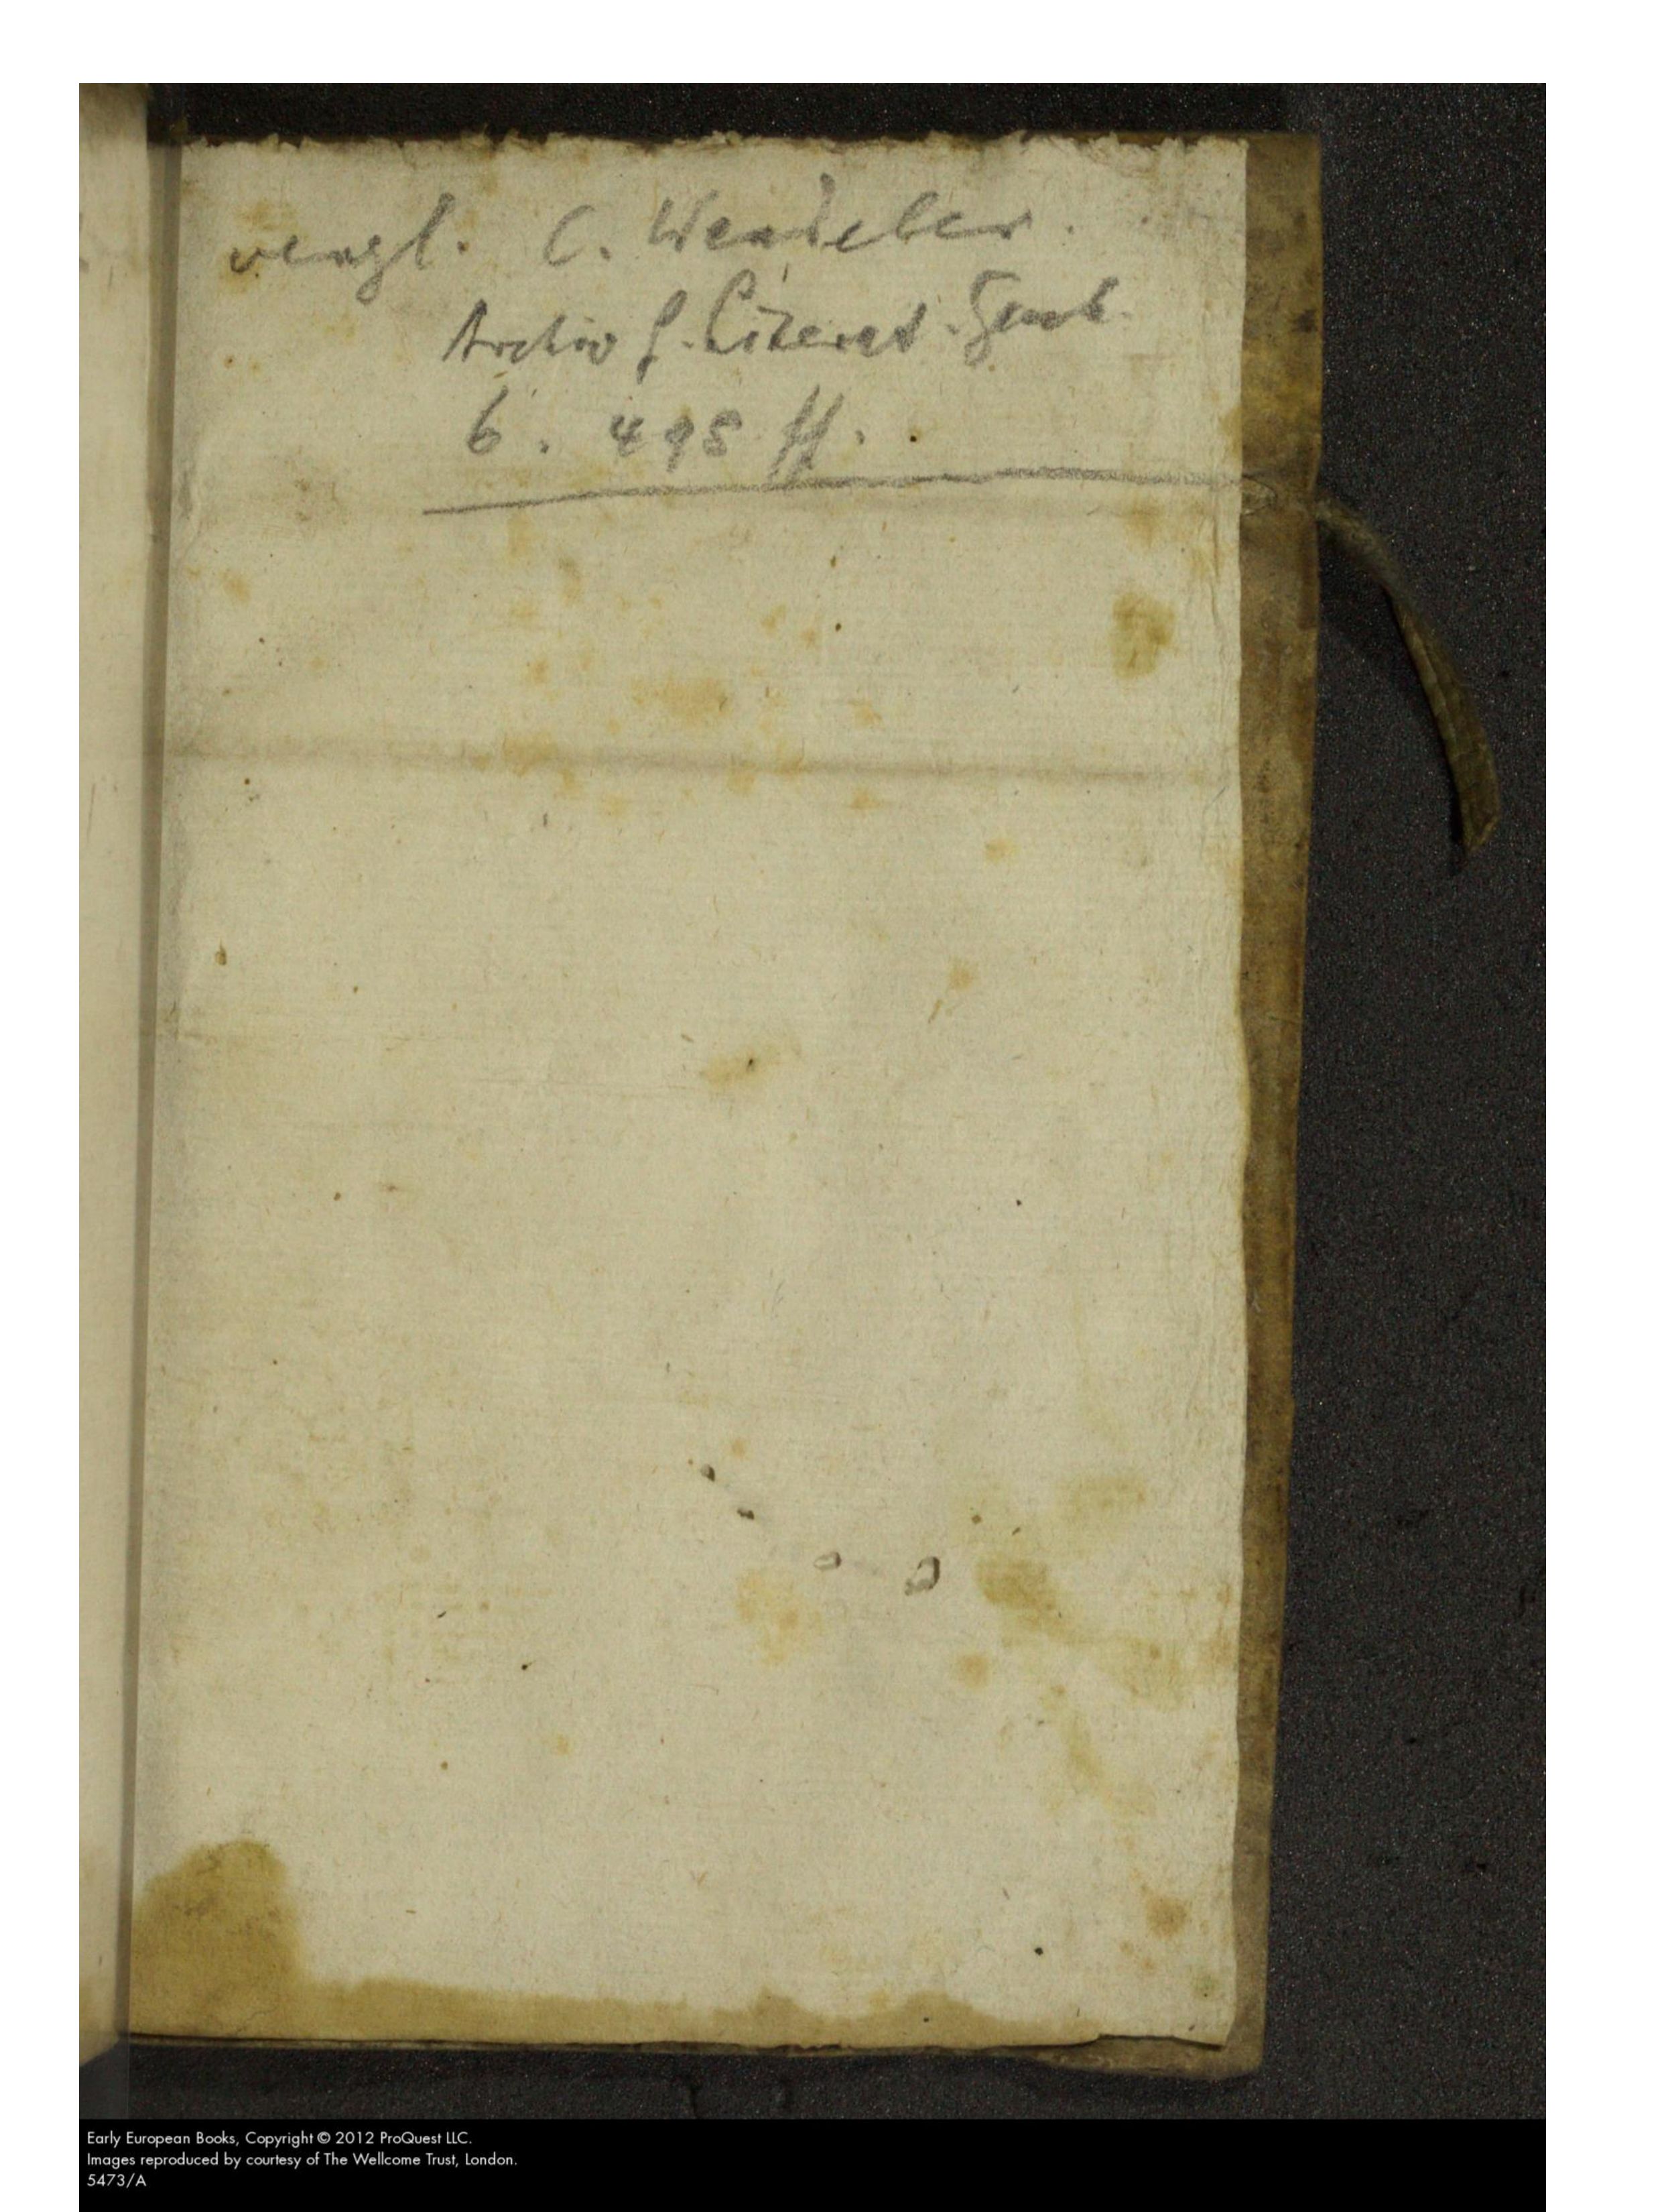 vergl. C. Wendeler.
Archiv f. Literat. Gesch.
6. 495 ff.
Early European Books, Copyright © 2012 ProQuest LLC.
Images reproduced by courtesy of The Wellcome Trust, London.
5473/A